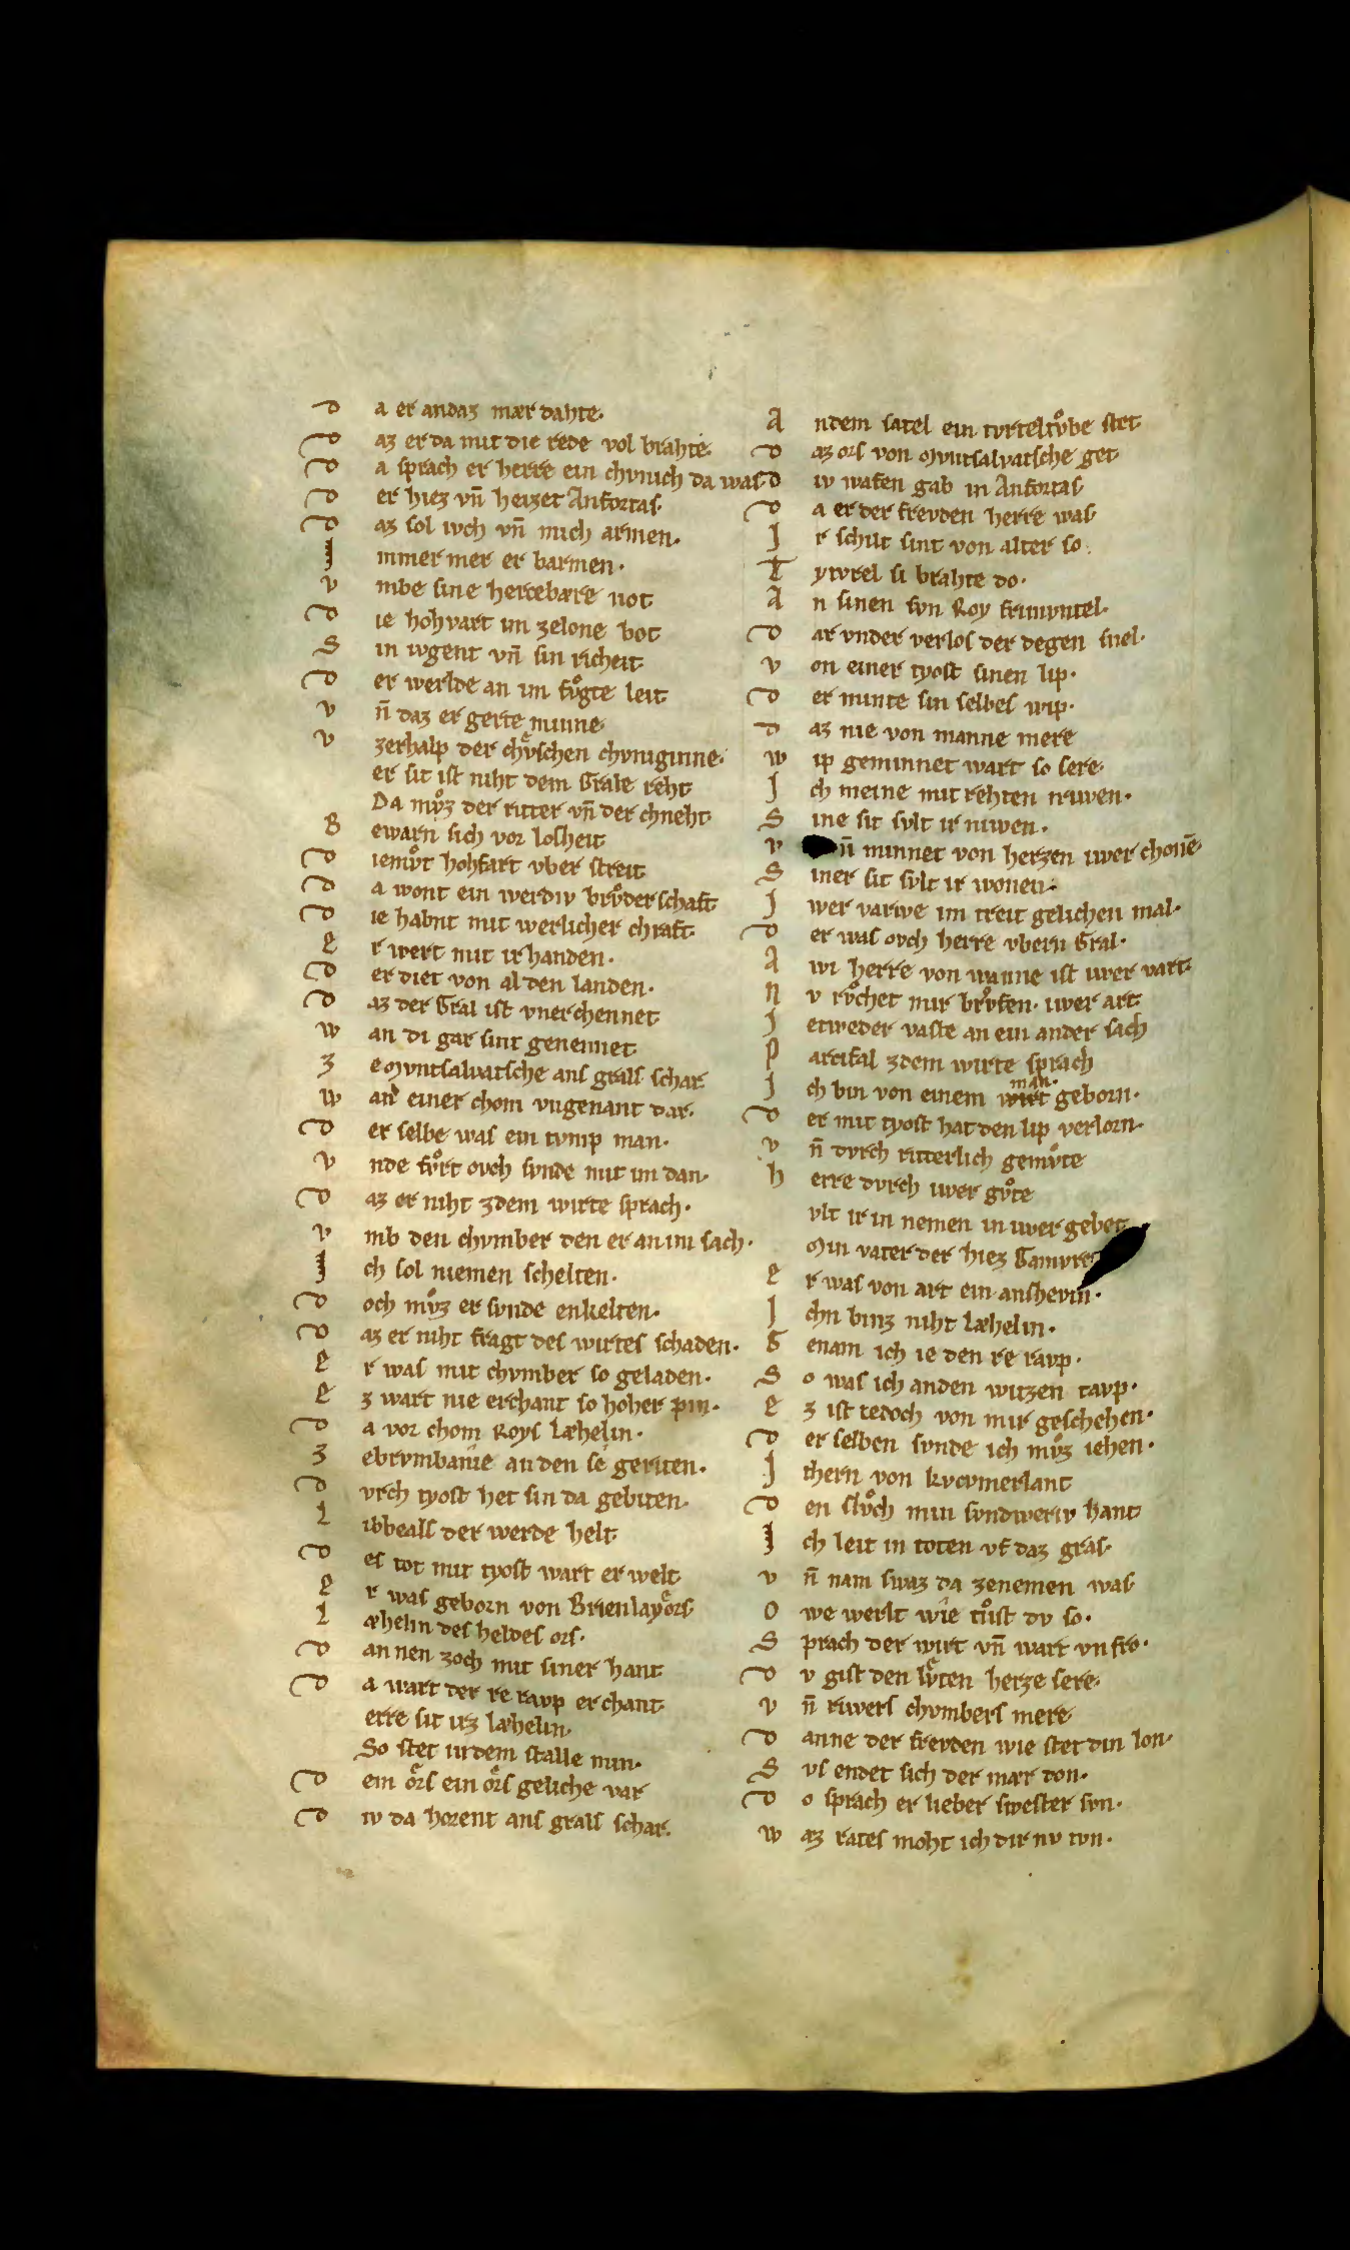 D a er an daz mær dahte.
D az er da mit die rede vol brahte.
D a sprach er herre ein chvnich da was
D er hiez vn̄ heizet Anfortas.
D az sol iwch vn̄ mich armen.
J mmer mer er barmen.
v mbe sine hercebære not
D ie hohvart im zelone bot
S in iwgent vn̄ sin richeit
D er werlde an im fvͦgte leit
v n̄ daz er gerte minne
v zerhalp der chv̂schen chvniginne.
er sit ist niht dem Grale reht
Da mvͦz der ritter vn̄ der chneht
B ewarn sich vor losheit
D iemvͦt hohfart vber streit
D a wont ein werdiv brvͦderschaft
D ie habnt mit werlicher chraft
E r wert mit ir handen.
D er diet von al den landen.
D az der Gral ist vnerchennet
w an di gar sint genennet
Z e Mvntsalvatsche ans grals schar
w an einer chom vngenant dar.
D er selbe was ein tvmp man.
v nde fvͦrt ovch svnde mit im dan.
D az er niht zdem wirte sprach.
v mb den chvmber den er an im sach.
J ch sol niemen schelten.
D och mvͦz er svnde enkelten.
D az er niht fragt des wirtes schaden.
E r was mit chvmber so geladen.
E z wart nie erchant so hoher pin.
D a vor chom Roys Læhelin.
Z ebrvmbanie an den se geriten.
D vrch tyost het sin da gebiten.
L ibbeals der werde helt
D es tot mit tyost wart er welt
E r was geborn von Brienlayors
L æhelin des heldes ors.
D annen zoch mit siner hant
D a wart der re ravp erchant
erre sit irz Læhelin.
So stet in dem stalle min.
D em ors ein ors geliche var
D iv da horent ans grals schar.
A ndem satel ein tvrteltvͦbe stet
D az ors von Mvntsalvatsche get
D iv wafen gab in Anfortas
D a er der frevden herre was
J r schilt sint von alter so.
T ytvrel si brahte do.
A n sinen svn Roy frimvntel.
D ar vnder verlos der degen snel.
v on einer tyost sinen lip.
D er minte sin selbes wip.
D az nie von manne mere
w ip geminnet wart so sere.
J ch meine mit rehten triwen.
S ine sit svlt ir niwen.
v n̄ minnet von herzen iwer chonē
S iner sit svlt ir wonen.
J wer varwe im treit gelichen mal.
D er was ovch herre vbern Gral.
A wi herre von wanne ist iwer vart
N v rvͦchet mir brvͦfen. iwer art
J etweder vaste an ein ander sach
P arcifal zdem wirte sprach
J ch bin von einem man geborn.
D er mit tyost hat den lip verlorn.
v n̄ dvrch ritterlich gemvͦte
h erre dvrch iwer gvͦte
vlt ir in nemen in iwer gebet
Min vater der hiez Gamvret
E r was von art ein anshevin.
J chn binz niht Læhelin.
G enam ich ie den re ravp.
S o was ich an den witzen tavp.
E z ist iedoch von mir geschehen.
D er selben svnde ich mvͦz iehen.
J thern von kvcvmerlant
D en slvͦch min svndweriv hant
J ch leit in toten vf daz gras.
v n̄ nam swaz da zenemen was
O we werlt wie tvͦst dv so.
S prach der wirt vn̄ wart vnfro.
D v gist den lv̂ten herze sere.
v n̄ riwers chvmbers mere
D anne der frevden wie stet din lon.
S vs endet sich der mær don.
D o sprach er lieber swester svn.
w az rates moht ich dir nv tvn.